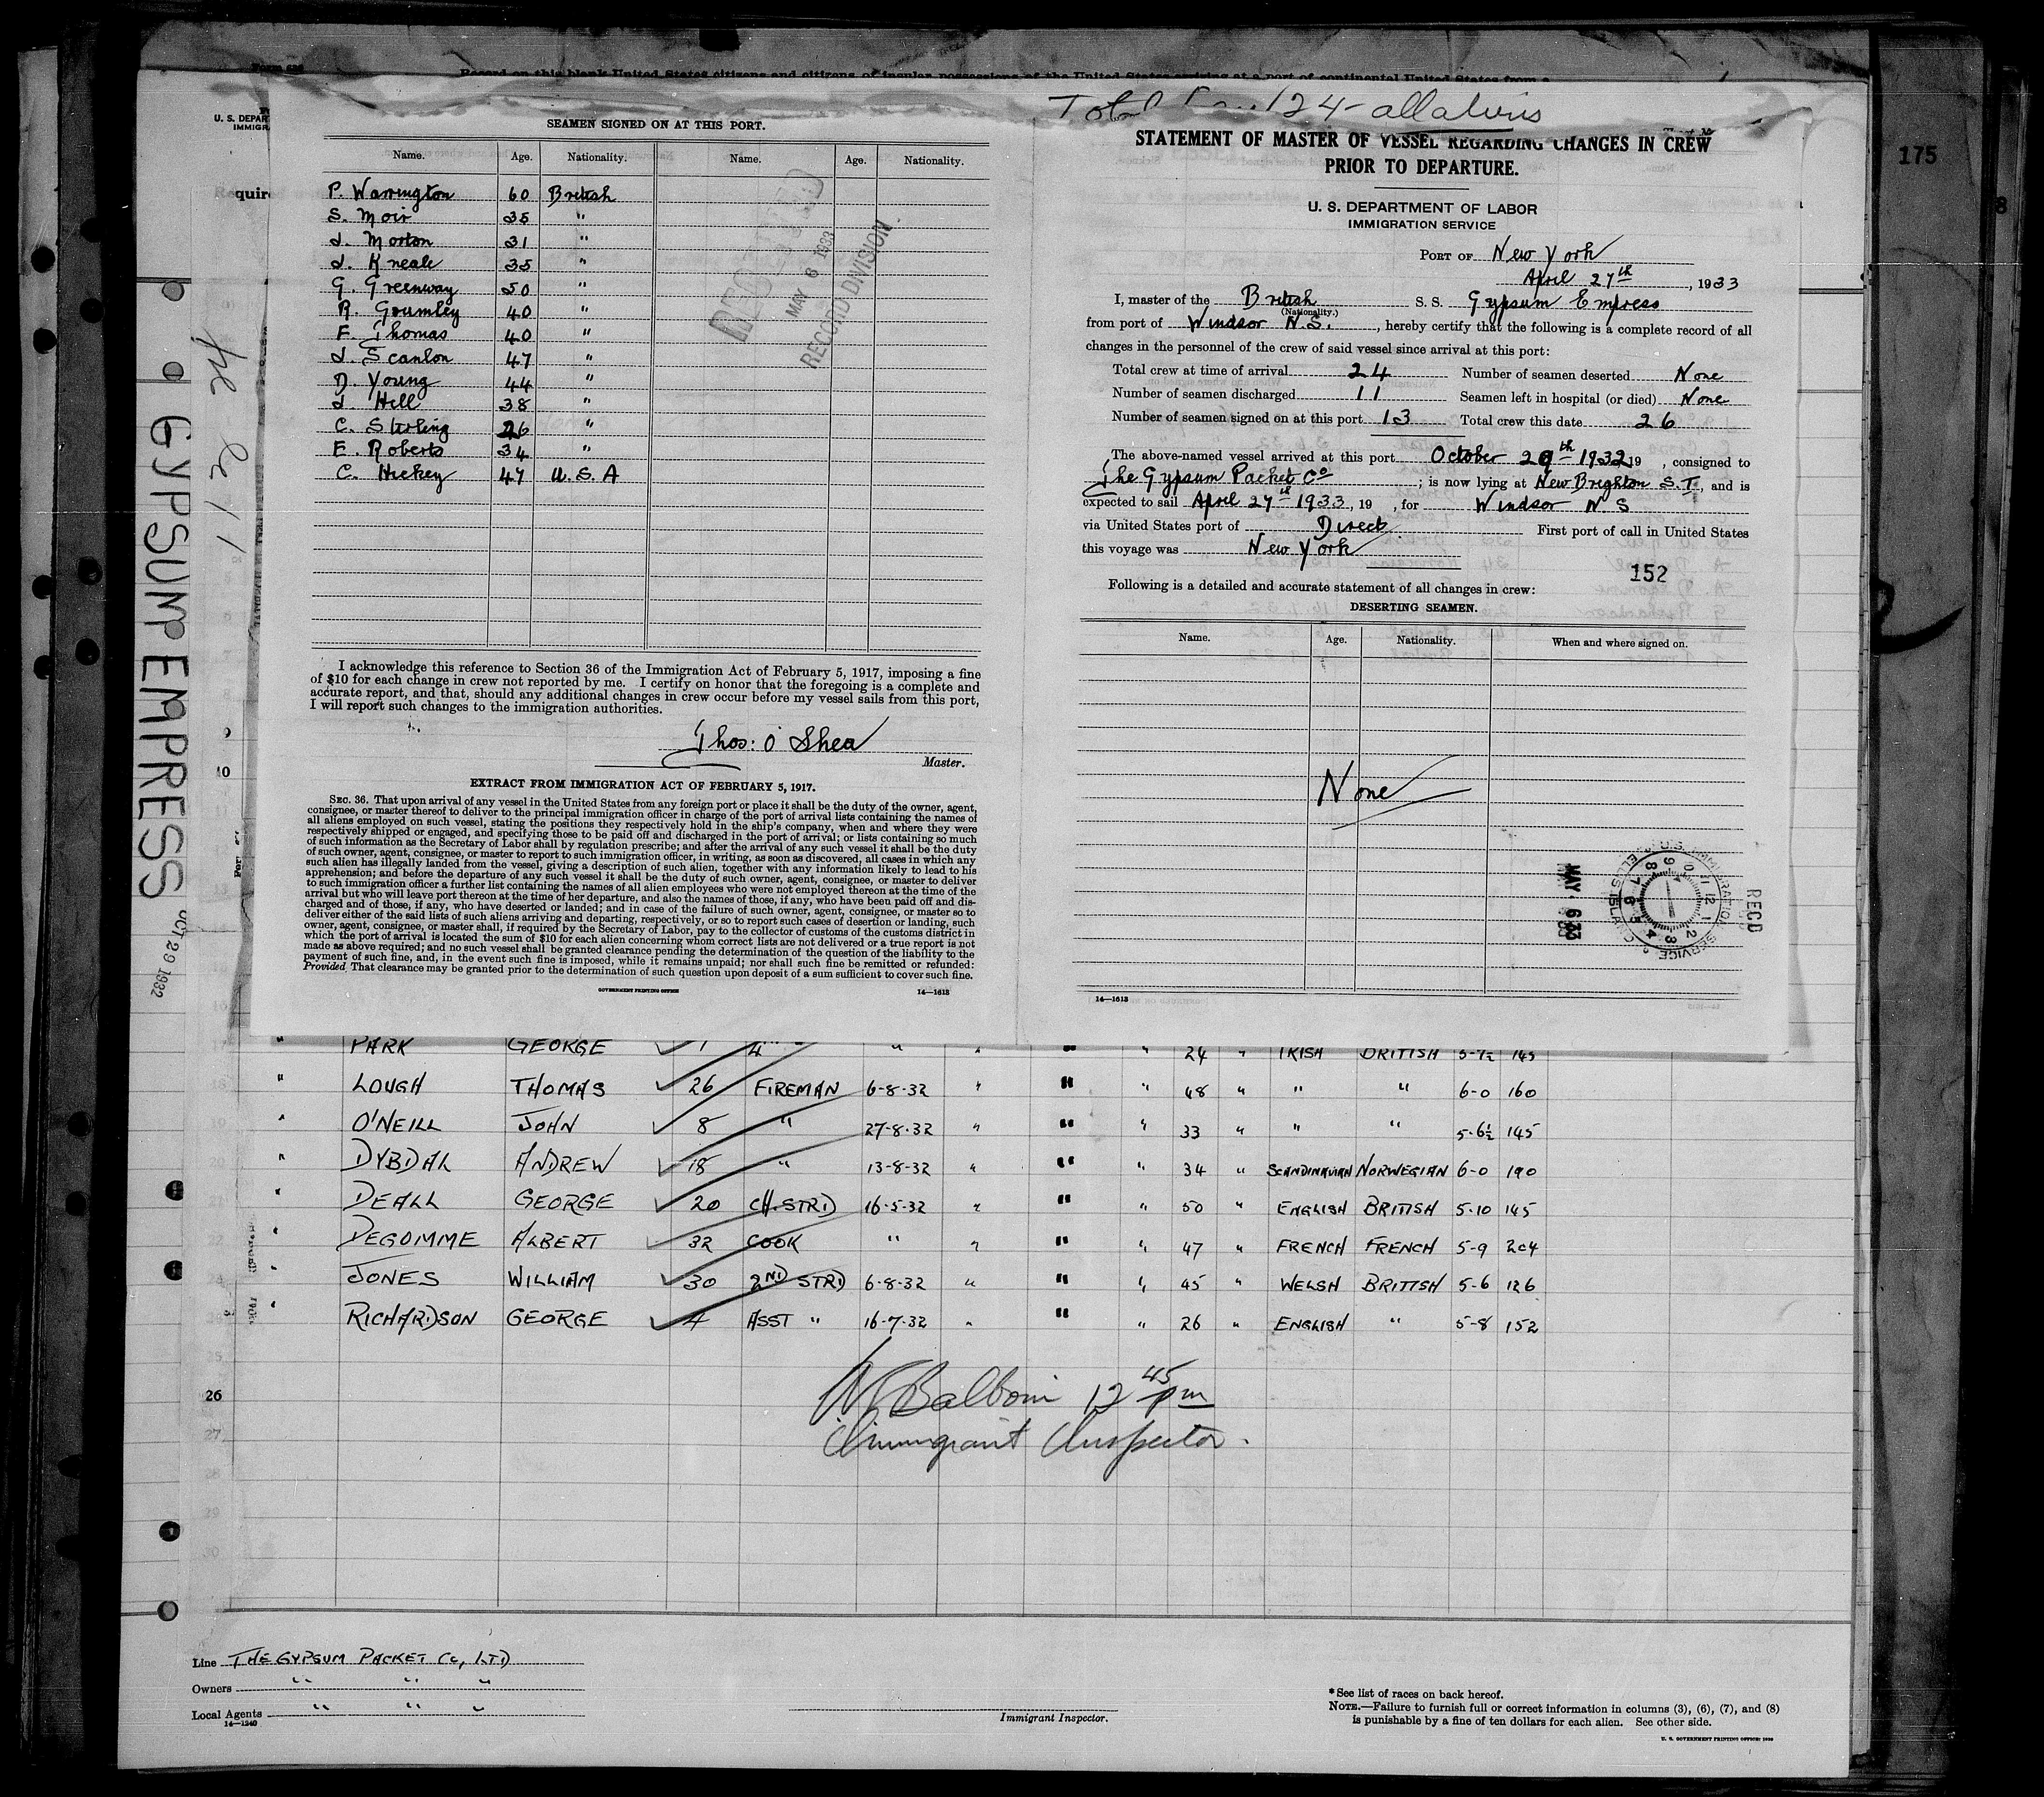 Record on this blank United States citizens and citizens of insular possessions of the United States arriving at a port of continental United States from a
U. S. DEPAR
IMMIGRA
quire
175
GYPSUM EMPRESS
OCT 29 1932
SEAMEN SIGNED ON AT THIS PORT.
Name. Age. Nationality. Name. Age. Nationality.
P. Warrington 60 British
S. Moir 35 "
J. Morton 31 "
J. Kneale 35 "
G. Greenway 50 "
R. Grumley 40 "
F. Thomas 40 "
J. Scanlon 47 "
D. Young 44 "
J. Hill 38 "
C. Stirling 26 "
E. Roberts 34 "
C. Hickey 47 U.S.A
RECEIVED
MAY 6 1933
RECORD DIVISION
I acknowledge this reference to Section 36 of the Immigration Act of February 5, 1917, imposing a fine
of $10 for each change in crew not reported by me. I certify on honor that the foregoing is a complete and
accurate report, and that, should any additional changes in crew occur before my vessel sails from this port,
I will report such changes to the immigration authorities.
Thos: O'Shea
Master.
EXTRACT FROM IMMIGRATION ACT OF FEBRUARY 5, 1917.
SEC. 36. That upon arrival of any vessel in the United States from any foreign port or place it shall be the duty of the owner, agent,
consignee, or master thereof to deliver to the principal immigration officer in charge of the port of arrival lists containing the names of
all aliens employed on such vessel, stating the positions they respectively hold in the ship's company, when and where they were
respectively shipped or engaged, and specifying those to be paid off and discharged in the port of arrival; or lists containing so much
of such information as the Secretary of Labor shall by regulation prescribe; and after the arrival of any such vessel it shall be the duty
of such owner, agent, consignee, or master to report to such immigration officer, in writing, as soon as discovered, all cases in which any
such alien has illegally landed from the vessel, giving a description of such alien, together with any information likely to lead to his
apprehension; and before the departure of any such vessel it shall be the duty of such owner, agent, consignee, or master to deliver
to such immigration officer a further list containing the names of all alien employees who were not employed thereon at the time of the
arrival but who will leave port thereon at the time of her departure, and also the names of those, if any, who have been paid off and dis-
charged and of those, if any, who have deserted or landed; and in case of the failure of such owner, agent, consignee, or master so to
deliver either of the said lists of such aliens arriving and departing, respectively, or so to report such cases of desertion or landing, such
owner, agent, consignee, or master shall, if required by the Secretary of Labor, pay to the collector of customs of the customs district in
which the port of arrival is located the sum of $10 for each alien concerning whom correct lists are not delivered or a true report is not
made as above required; and no such vessel shall be granted clearance pending the determination of the question of the liability to the
payment of such fine, and, in the event such fine is imposed, while it remains unpaid; nor shall such fine be remitted or refunded:
Provided That clearance may be granted prior to the determination of such question upon deposit of a sum sufficient to cover such fine.
GOVERNMENT PRINTING OFFICE 14—1613
124 - all aliens
STATEMENT OF MASTER OF VESSEL REGARDING CHANGES IN CREW
PRIOR TO DEPARTURE.
U. S. DEPARTMENT OF LABOR
IMMIGRATION SERVICE
PORT OF New York
April 27th, 1933
I, master of the British S. S. Gypsum Empress
(Nationality.)
from port of Windsor N.S., hereby certify that the following is a complete record of all
changes in the personnel of the crew of said vessel since arrival at this port:
Total crew at time of arrival 24 Number of seamen deserted None
Number of seamen discharged 11 Seamen left in hospital (or died) None
Number of seamen signed on at this port 13 Total crew this date 26
The above-named vessel arrived at this port October 29th 1932 19 , consigned to
The Gypsum Packet Co ; is now lying at New Brighton S.I., and is
expected to sail April 27th 1933, 19 , for Windsor N S
via United States port of Direct First port of call in United States
this voyage was New York
152
Following is a detailed and accurate statement of all changes in crew:
DESERTING SEAMEN.
Name. Age. Nationality. When and where signed on.
None
MAY 6 33
U.S. IMMIGRATION SERVICE
RECD
14—1613
" PARK GEORGE 1 4 " " " " 24 " IRISH BRITISH 5-7½ 145
" LOUGH THOMAS 26 FIREMAN 6-8-32 " " " 48 " " " 6-0 160
" O'NEILL JOHN 8 " 27-8-32 " " " 33 " " " 5-6½ 145
" DYBDAL ANDREW 18 " 13-8-32 " " " 34 " SCANDINAVIAN NORWEGIAN 6-0 190
" DEALL GEORGE 20 CH. STRD 16-5-32 " " " 50 " ENGLISH BRITISH 5-10 145
" DEGOMME ALBERT 32 COOK " " " " 47 " FRENCH FRENCH 5-9 204
" JONES WILLIAM 30 2ND STRD 6-8-32 " " " 45 " WELSH BRITISH 5-6 126
" RICHARDSON GEORGE 4 ASST " 16-7-32 " " " 26 " ENGLISH " 5-8 152
26
27
28
29
30
12 45 pm
Immigrant Inspector.
Line THE GYPSUM PACKET Co, LTD
Owners " " "
Local Agents " " "
14—1240
Immigrant Inspector.
*See list of races on back hereof.
NOTE.—Failure to furnish full or correct information in columns (3), (6), (7), and (8)
is punishable by a fine of ten dollars for each alien. See other side.
U. S. GOVERNMENT PRINTING OFFICE: 1930